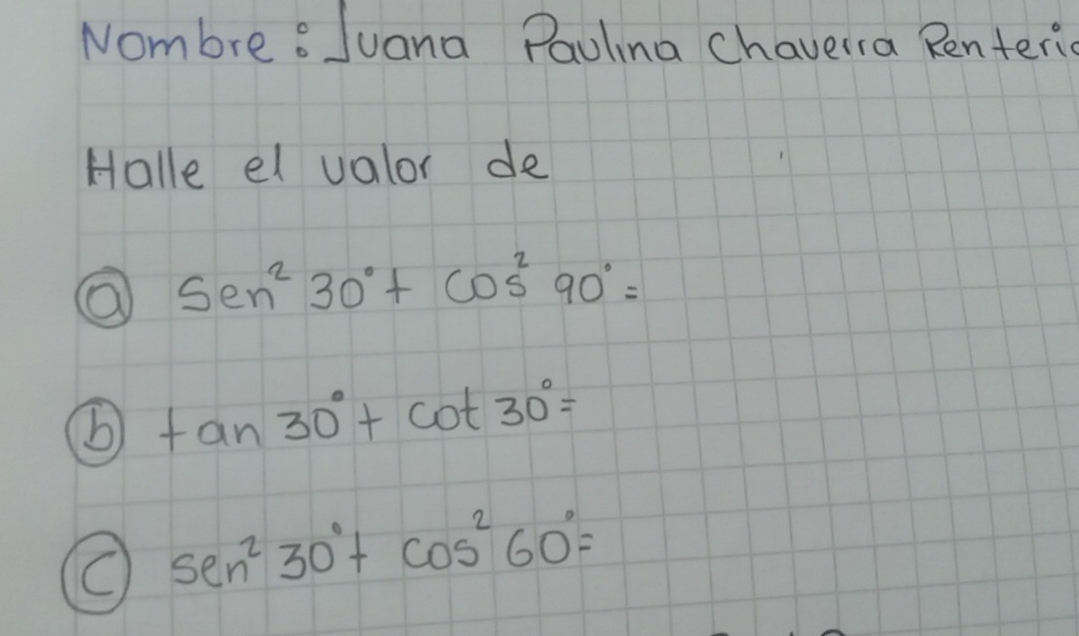 Nombre: Juana Paulina Chaverra Renteria
Halle el valor de
ⓐ Sen² 30° + cos² 90° =
ⓑ tan 30° + cot 30° =
ⓒ sen² 30° + cos² 60° =